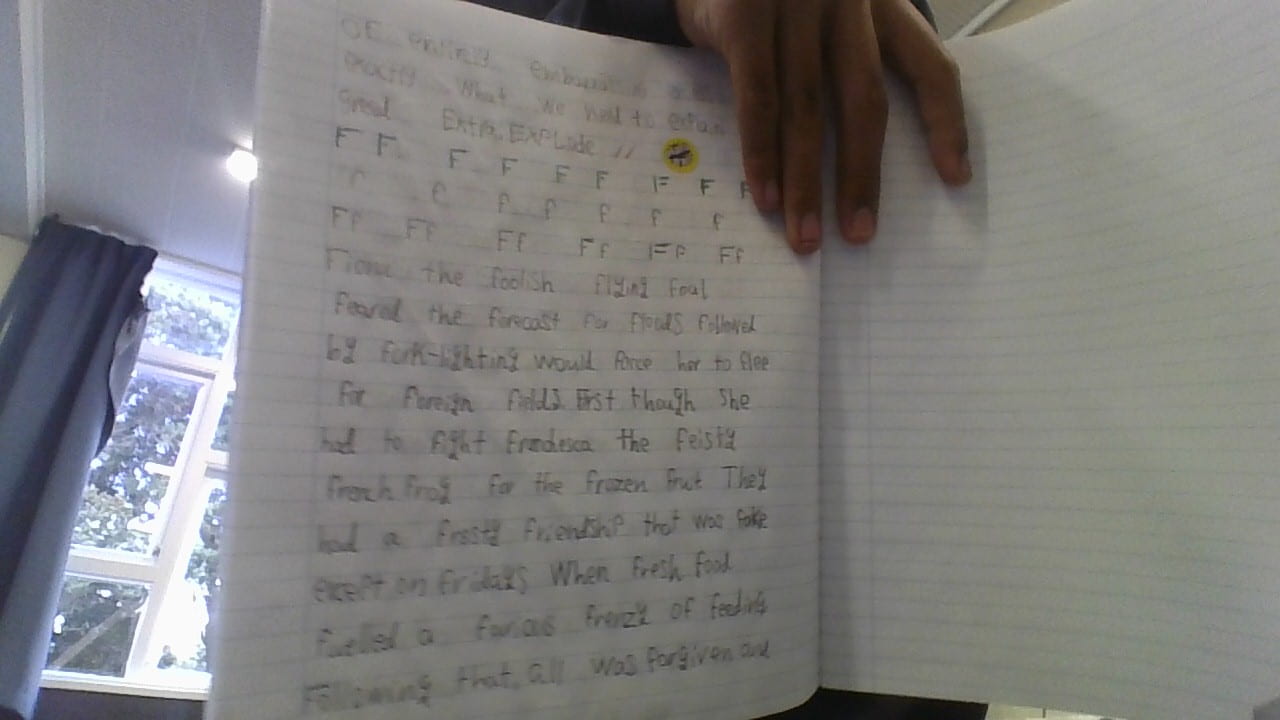 exactly What we need to explain
Extra. EXPLode //
F F F F F F F F F
f f f f f f f
Ff Ff Ff Ff Ff Ff
Fiona the foolish flying foul
feared the forecast for floods followed
by fork-lighting would force her to flee
for foreign fields. First though She
had to fight francesca the feisty
french frog for the frozen fruit They
had a frosty friendship that was fake
except on fridays When fresh food
fuelled a furious frenzy of feeding
Following that, all was forgiven and